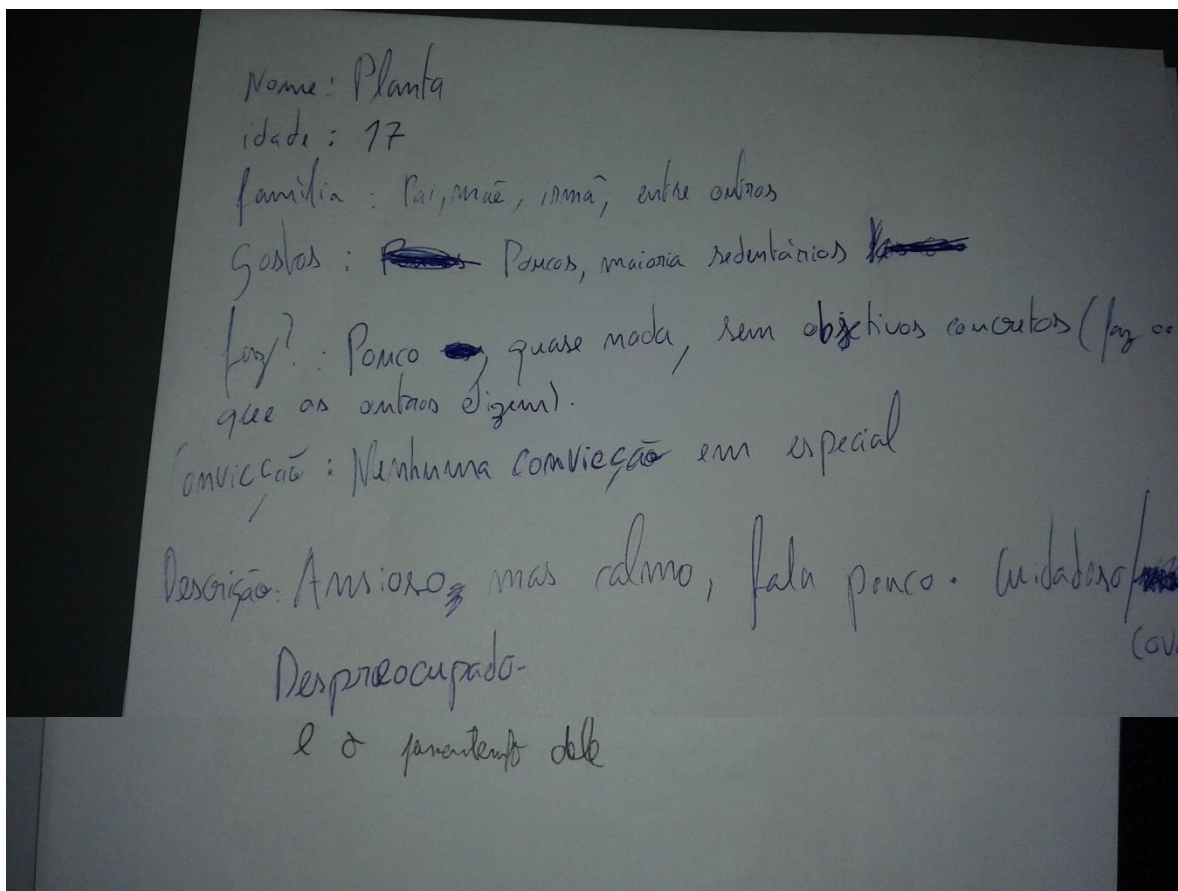 Nome: Planta
idade: 17
família: Pai, mãe, irmã, entre outros
Gostos: Poucos, maioria sedentários
faz?: Pouco, quase nada, sem objetivos concretos (faz oo
que os outros dizem).
Convicção: Nenhuma convicção em especial
Descrição: Ansioso, mas calmo, fala pouco. Cuidadoso/
(cov
Despreocupado.
e o dele